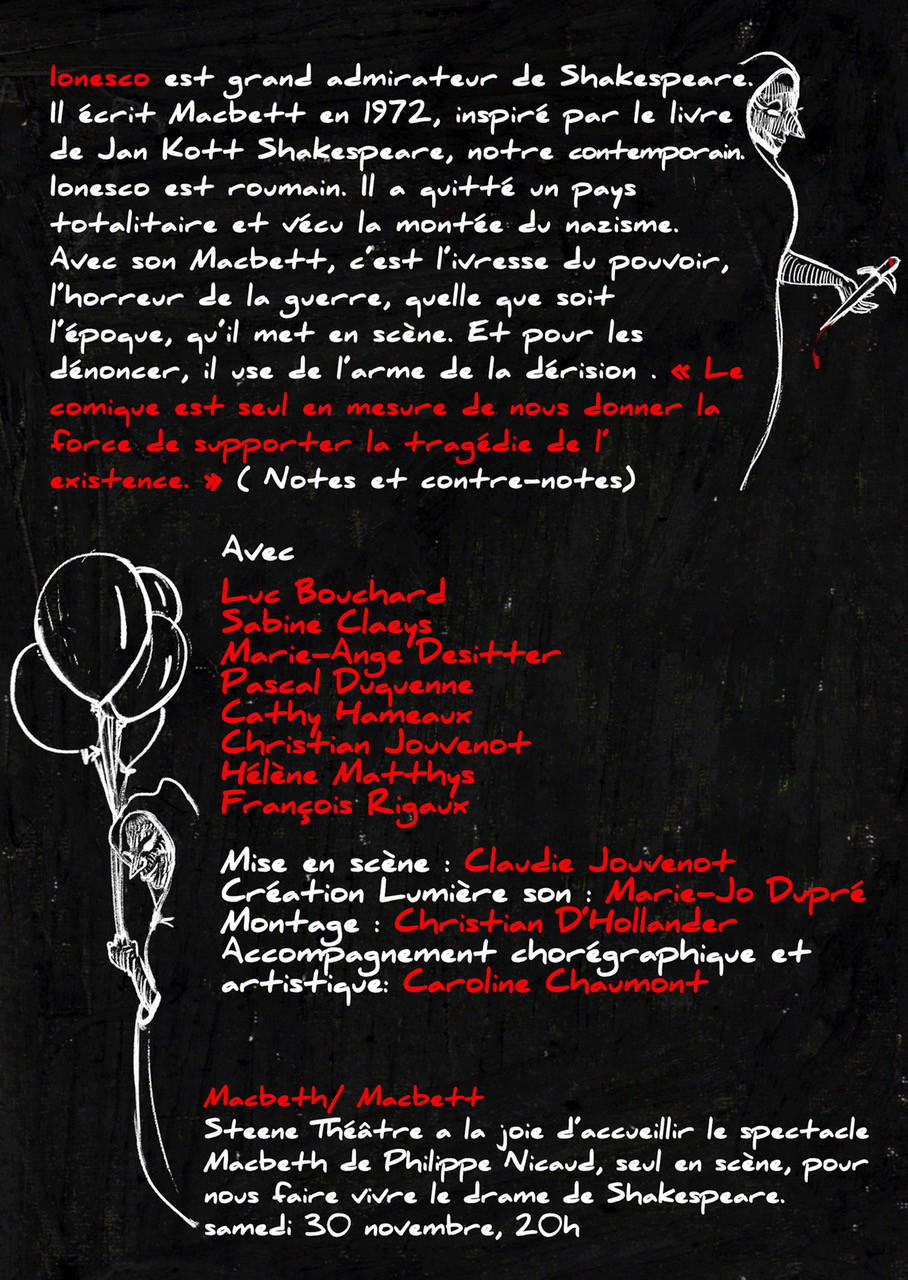 Ionesco est grand admirateur de Shakespeare.
Il écrit Macbett en 1972, inspiré par le livre
de Jan Kott Shakespeare, notre contemporain.
Ionesco est roumain. Il a quitté un pays
totalitaire et vécu la montée du nazisme.
Avec son Macbett, c'est l'ivresse du pouvoir,
l'horreur de la guerre, quelle que soit
l'époque, qu'il met en scène. Et pour les
dénoncer, il use de l'arme de la dérision . « Le
comique est seul en mesure de nous donner la
force de supporter la tragédie de l'
existence. » ( Notes et contre-notes)
Avec
Luc Bouchard
Sabine Claeys
Marie-Ange Desitter
Pascal Duquenne
Cathy Hameaux
Christian Jouvenot
Hélène Matthys
François Rigaux
Mise en scène : Claudie Jouvenot
Création Lumière son : Marie-Jo Dupré
Montage : Christian D'Hollander
Accompagnement chorégraphique et
artistique: Caroline Chaumont
Macbeth/ Macbett
Steene Théâtre a la joie d'accueillir le spectacle
Macbeth de Philippe Nicaud, seul en scène, pour
nous faire vivre le drame de Shakespeare.
samedi 30 novembre, 20h